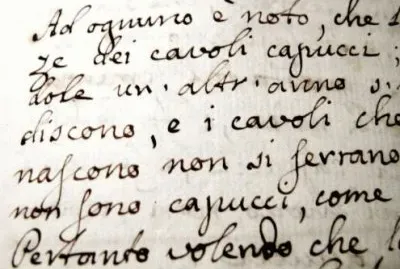 Ad ogniuno è noto, che
ze dei cavoli capucci ;
dole un' altr' anno s
discono, e i cavoli che
nascono non si serrano
non sono capucci, come
Pertanto volendo che l